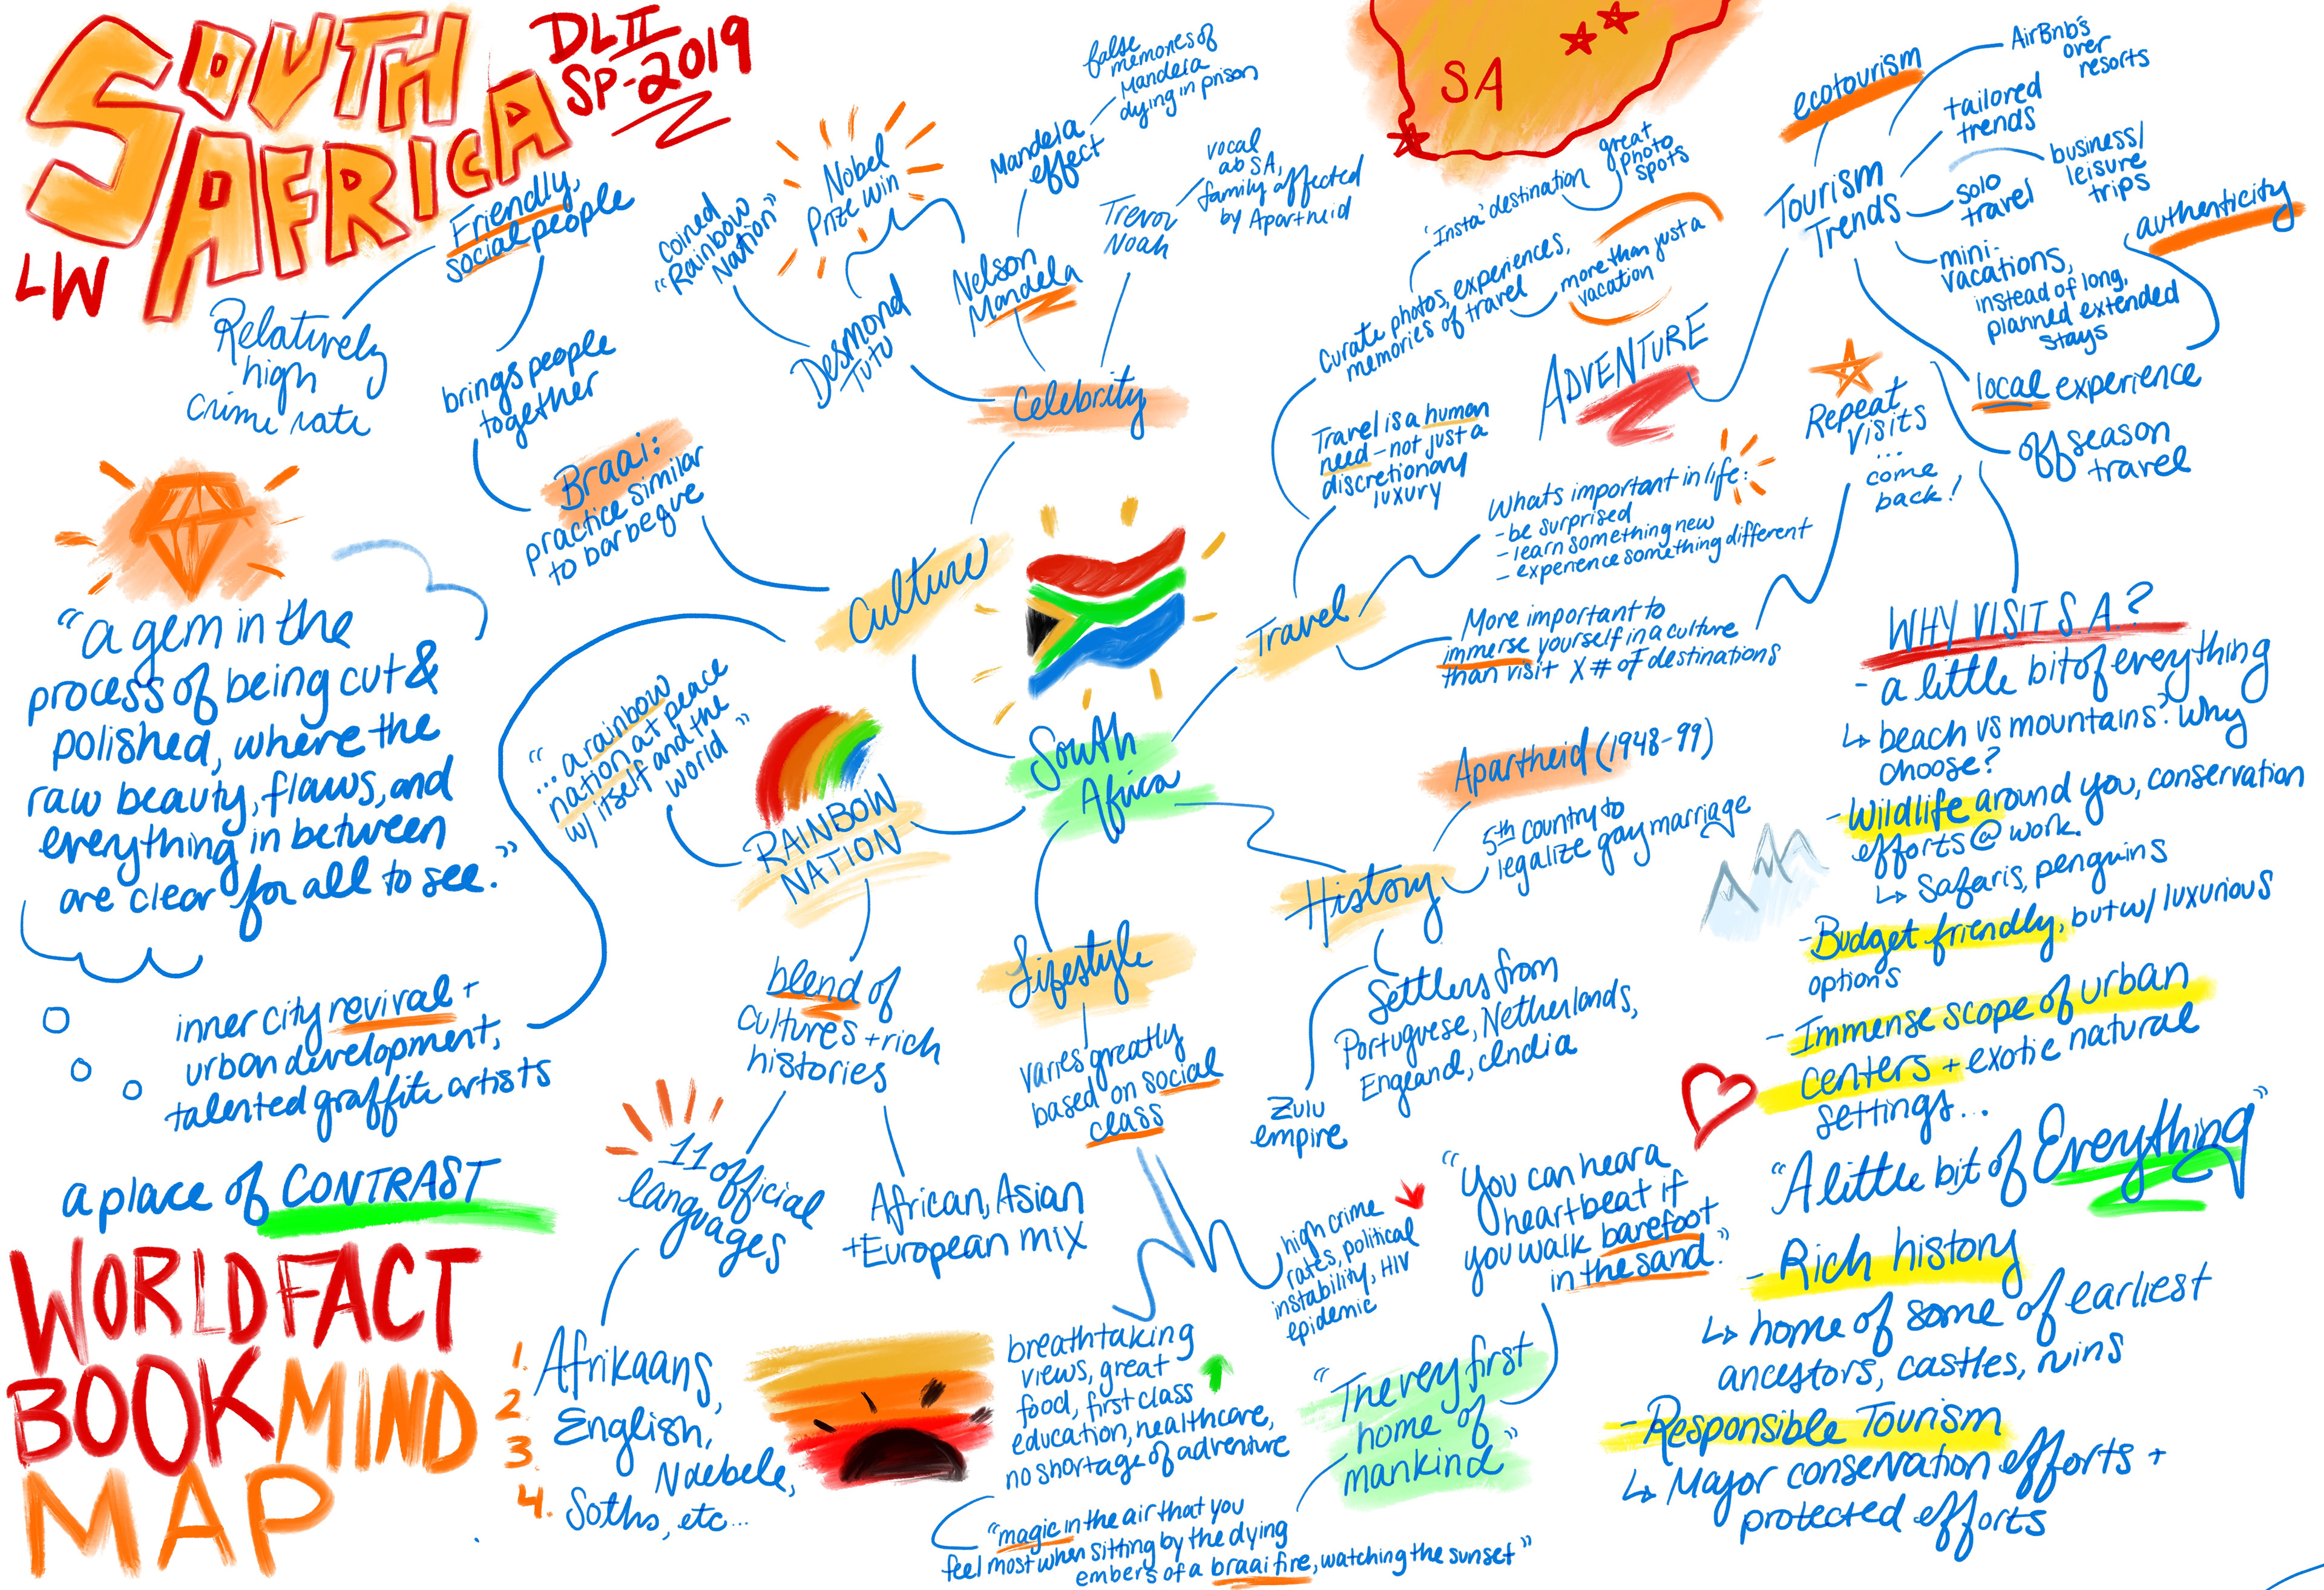 SOUTH
AFRICA
DLII
SP-2019
LW
Friendly,
social people
Relatively
high
crime rate
brings people
together
Braai:
practice similar
to barbeque
coined
"Rainbow
Nation"
Nobel
Prize win
Desmond
Tutu
Nelson
Mandela
Mandela
effect
false
memories of
Mandela
dying in prison
Trevor
Noah
vocal
ab SA,
family affected
by Apartheid
Celebrity
Culture
SA
'Insta' destination
great
photo
spots
Curate photos, experiences,
memories of travel
more than just a
vacation
ADVENTURE
Travel is a human
need - not just a
discretionary
luxury
Whats important in life:
- be surprised
- learn something new
- experience something different
Travel
More important to
immerse yourself in a culture
than visit X # of destinations
Repeat
Visits
...
come
back!
Tourism
Trends
ecotourism
AirBnb's
over
resorts
tailored
trends
business/
leisure
trips
solo
travel
mini-
vacations,
instead of long,
planned extended
stays
authenticity
local experience
off season
travel
WHY VISIT S.A.?
- a little bit of everything
↳ beach vs mountains? Why
choose?
- Wildlife around you, conservation
efforts @ work.
↳ safaris, penguins
- Budget friendly, but w/ luxurious
options
- Immense scope of urban
centers + exotic natural
settings...
"A little bit of Everything"
- Rich history
↳ home of some of earliest
ancestors, castles, ruins
- Responsible Tourism
↳ Major conservation efforts +
protected efforts
"a gem in the
process of being cut &
polished, where the
raw beauty, flaws, and
everything in between
are clear for all to see."
inner city revival +
urban development,
talented graffite artists
a place of CONTRAST
WORLD FACT
BOOK MIND
MAP
"...a rainbow
nation at peace
w/ itself and the
world"
RAINBOW
NATION
South
Africa
blend of
cultures + rich
histories
11 official
languages
African, Asian
+ European mix
1. Afrikaans,
2. English,
3. Ndebele,
4. Sotho, etc...
Lifestyle
varies greatly
based on social
class
high crime
rates, political
instability, HIV
epidemic
breathtaking
views, great
food, first class
education, healthcare,
no shortage of adventure
"magic in the air that you
feel most when sitting by the dying
embers of a braai fire, watching the sunset"
History
Apartheid (1948-99)
5th country to
legalize gay marriage
Settlers from
Portuguese, Netherlands,
England, India
Zulu
empire
"You can hear a
heartbeat if
you walk barefoot
in the sand."
"The very first
home of
mankind"